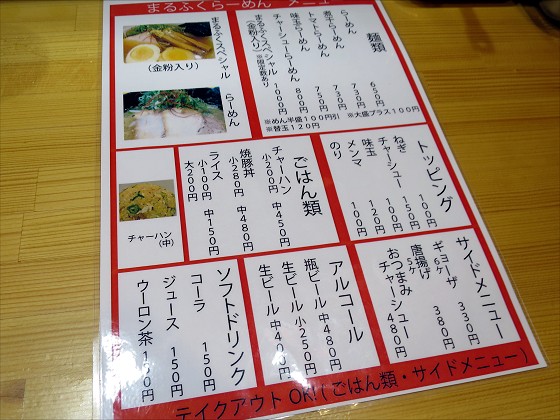 まるふくらーめん メニュー
まるふくスペシャル
(金粉入り)
らーめん
麺類
らーめん 650円
煮干らーめん 730円
トマトらーめん 750円
味玉らーめん 730円
チャーシューらーめん 800円
まるふくスペシャル
(金粉入り) ※限定数あり 1000円
※めん半盛100円引 ※大盛プラス100円
※替玉120円
チャーハン
(中)
ごはん類
チャーハン
小200円 中450円
焼豚丼
小280円 中480円
ライス
小100円 中150円
大200円
トッピング
ねぎ 100円
チャーシュー 150円
味玉 100円
メンマ 120円
のり 100円
ソフトドリンク
コーラ 150円
ジュース 150円
ウーロン茶 100円
アルコール
瓶ビール 中480円
生ビール 小250円
生ビール 中400円
サイドメニュー
ギョーザ
6ケ 330円
唐揚げ
5ケ 380円
おつまみ
チャーシュー 480円
テイクアウトOK!(ごはん類・サイドメニュー)